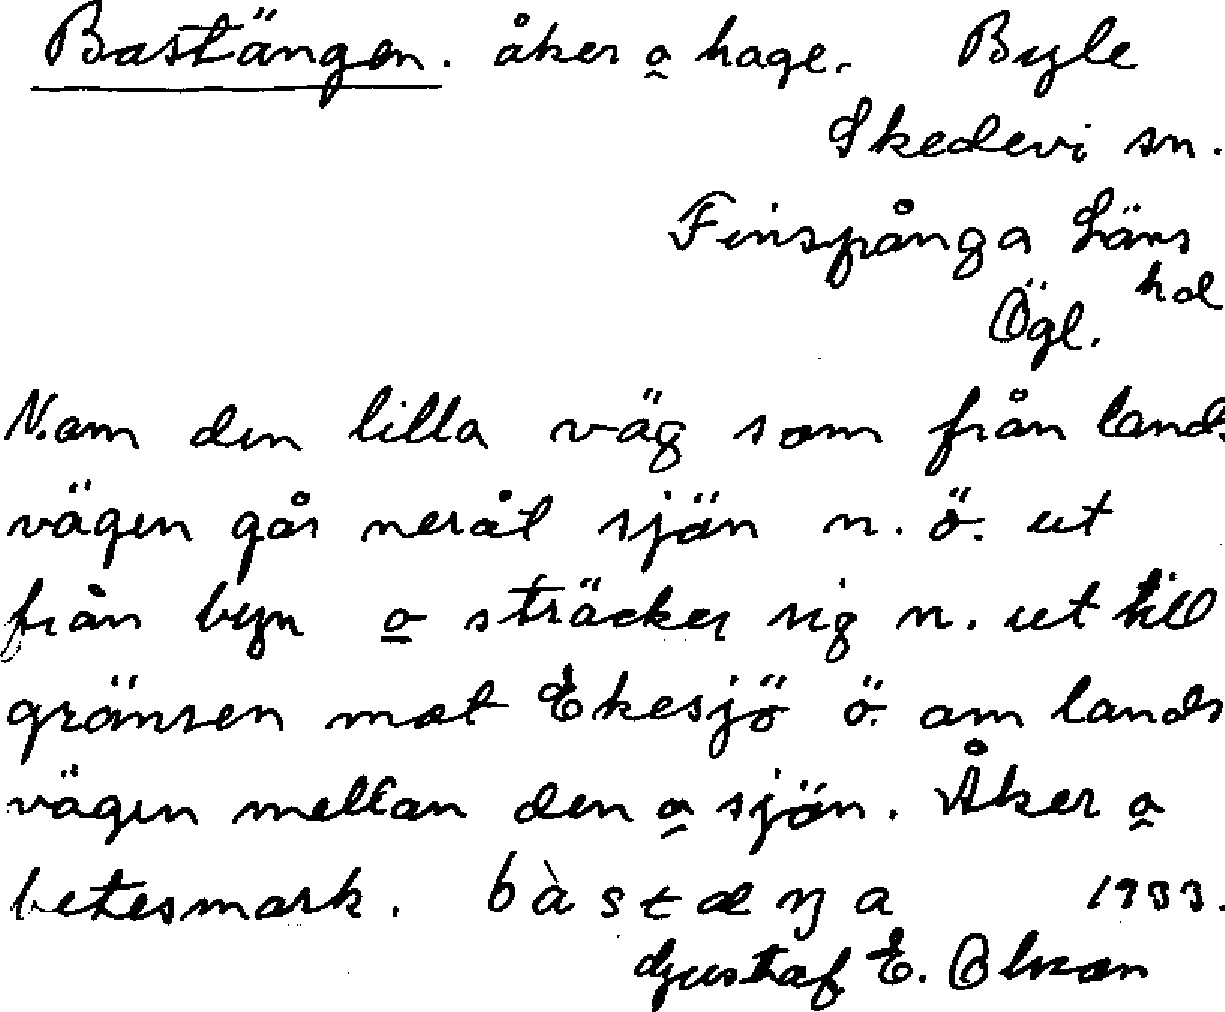 Bastängen. åker o hage. Byle
Skedevi sn.
Finspånga Läns
hd
Ögl.
N. om den lilla väg som från lands
vägen går neråt sjön n. ö. ut
från byn o sträcker sig n. ut till
gränsen mot Ekesjö ö. om lands
vägen mellan den o sjön. Åker o
betesmark. bàstæŋa 1933.
Gustaf E. Olsson